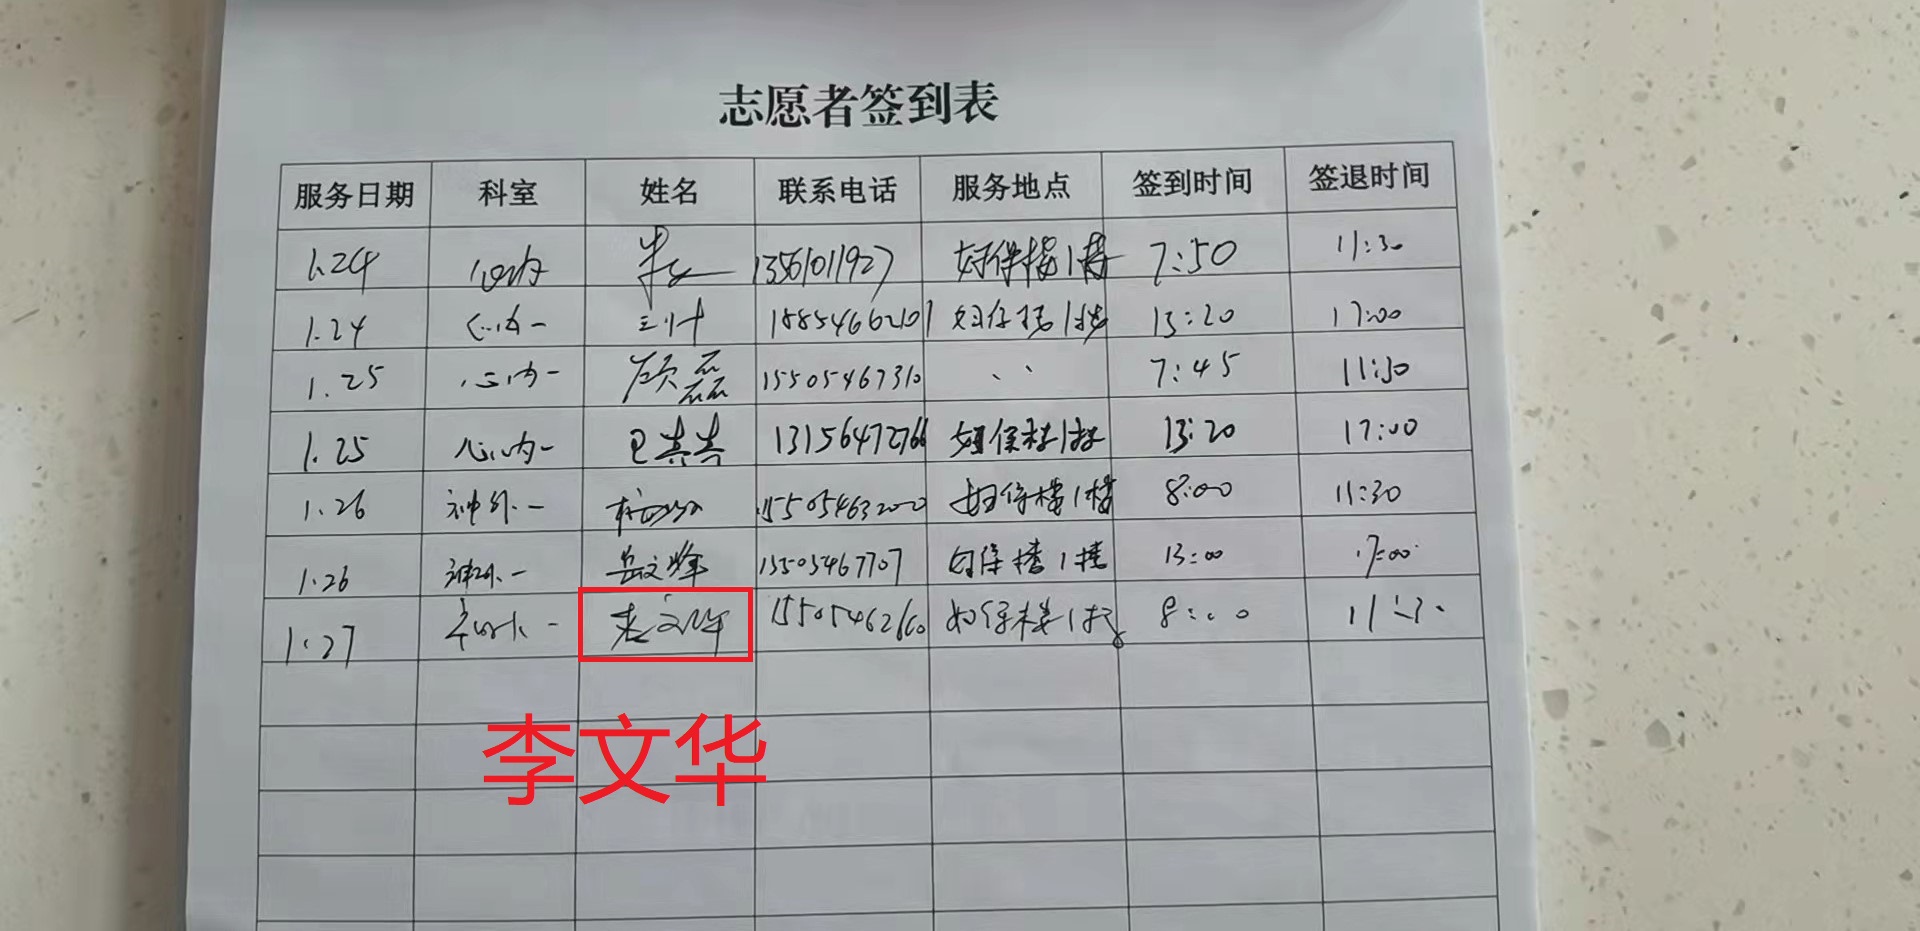 志愿者签到表
服务日期 科室 姓名 联系电话 服务地点 签到时间 签退时间
1.24 心内 13561011927 妇保楼1楼 7:50 11:30
1.24 心内一 15854662101 妇保楼1楼 13:20 17:00
1.25 心内一 顾磊 15505467310 、、 7:45 11:30
1.25 心内一 巴真真 13156472766 妇保楼1楼 13:20 17:00
1.26 神外一 15505463200 妇保楼1楼 8:00 11:30
1.26 神外一 岳文峰 15505467707 妇保楼1楼 13:00 17:00
1.27 神外一 15505462660 妇保楼1楼 8:00 11:30
李文华